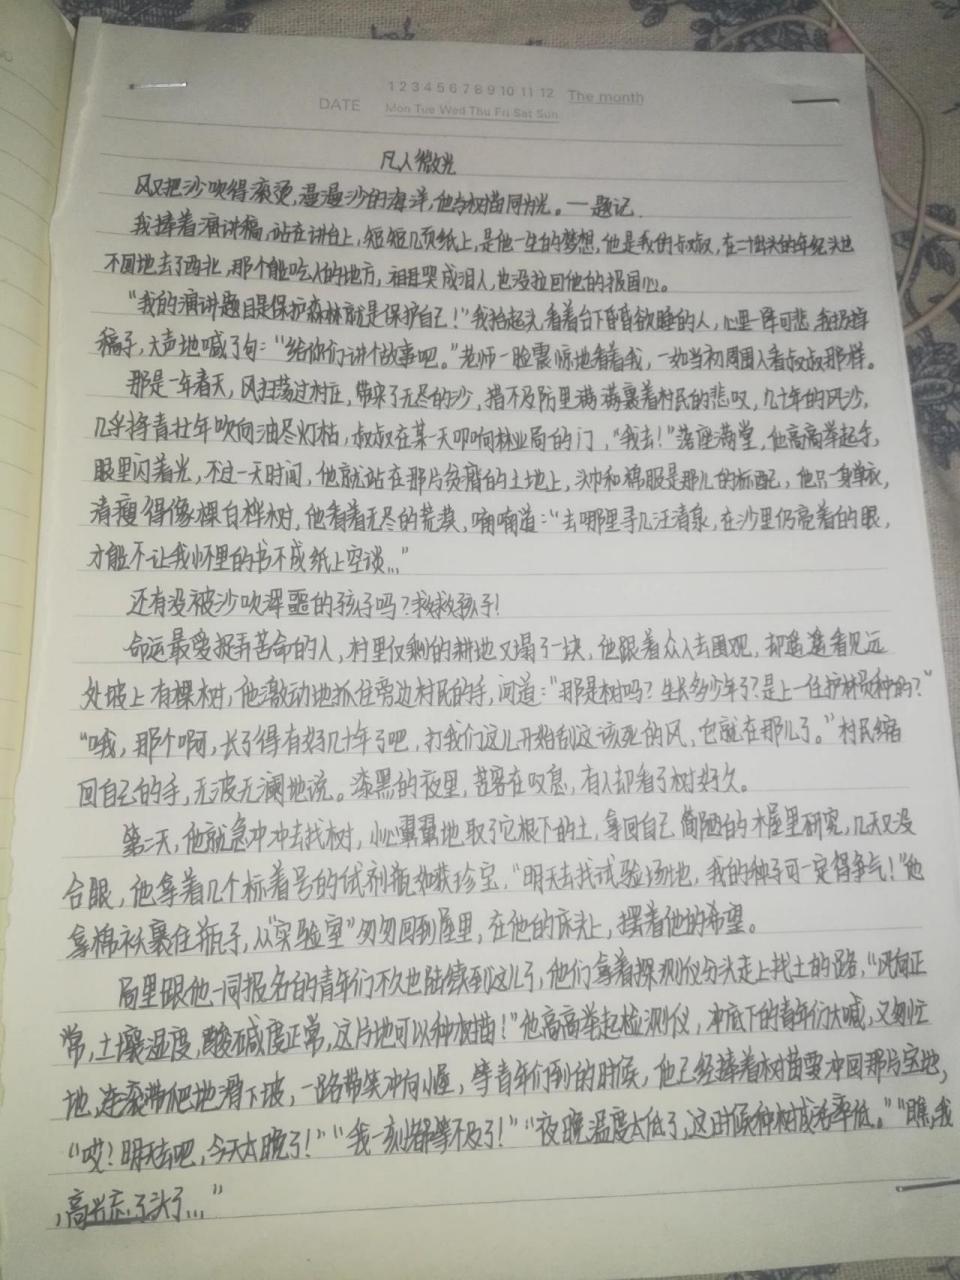 1 2 3 4 5 6 7 8 9 10 11 12 The month
DATE Mon Tue Wed Thu Fri Sat Sun
凡人微光
风又把沙吹得滚烫,漫漫沙的海洋,他与树苗同为光。—题记.
我捧着演讲稿,站在讲台上,短短几页纸上,是他一生的梦想,他是我的叔叔,在二十出头的年纪头也
不回地去了西北,那个能吃人的地方,祖母哭成泪人,也没拉回他的报国心。
“我的演讲题目是保护森林就是保护自己!”我抬起头,看着台下昏昏欲睡的人,心里一阵可悲,我扔掉
稿子,大声地喊了句:“给你们讲个故事吧。”老师一脸震惊地看着我,一如当初周围人看叔叔那样。
那是一年春天,风扫荡过村庄,带来了无尽的沙,措不及防里满满裹着村民的悲叹,几十年的风沙,
几乎将青壮年吹向油尽灯枯,叔叔在某一天叩响林业局的门,“我去!”落座满堂,他高高举起手,
眼里闪着光,不过一天时间,他就站在那片贫瘠的土地上,头巾和棉服是那儿的标配,他只一身单衣,
清瘦得像棵白桦树,他看着无尽的荒漠,喃喃道:“去哪里寻几汪清泉,在沙里仍亮着的眼,
才能不让我怀里的书不成纸上空谈...”
还有没被沙吹浑噩的孩子吗?救救孩子!
命运最爱捉弄苦命的人,村里仅剩的耕地又塌了一块,他跟着众人去围观,却遥遥看见远
处坡上有棵树,他激动地抓住旁边村民的手,问道:“那是树吗?生长多少年了?是上一任护林员种的?”
“哦,那个啊,长了得有好几十年了吧,打我们这儿开始刮这该死的风,它就在那儿了。”村民缩
回自己的手,无波无澜地说。漆黑的夜里,苦客在叹息,有人却看了树好久。
第二天,他就急冲冲去找树,小心翼翼地取了它根下的土,拿回自己简陋的木屋里研究,几天又没
合眼,他拿着几个标着号的试剂瓶如获珍宝,“明天去找试验场地,我的种子可一定得争气!”他
拿棉衣袄裹住瓶子,从“实验室”匆匆回到屋里,在他的床头上,摆着他的希望。
局里跟他一同报名的青年们不久也陆续到这儿了,他们拿着探测仪分头走上找土的路,“风向正
常,土壤湿度,酸碱度正常,这片地可以种树苗!”他高高举起检测仪,冲底下的青年们大喊,又匆忙
地,连滚带爬地滑下坡,一路带笑冲向小屋,等青年们到的时候,他已经捧着树苗要冲回那片宝地,
“哎?明天去吧,今天太晚了!”“我一刻都等不及了!”“夜晚温度太低了,这时候种树成活率低。”“瞧,我
,高兴忘了头了...”